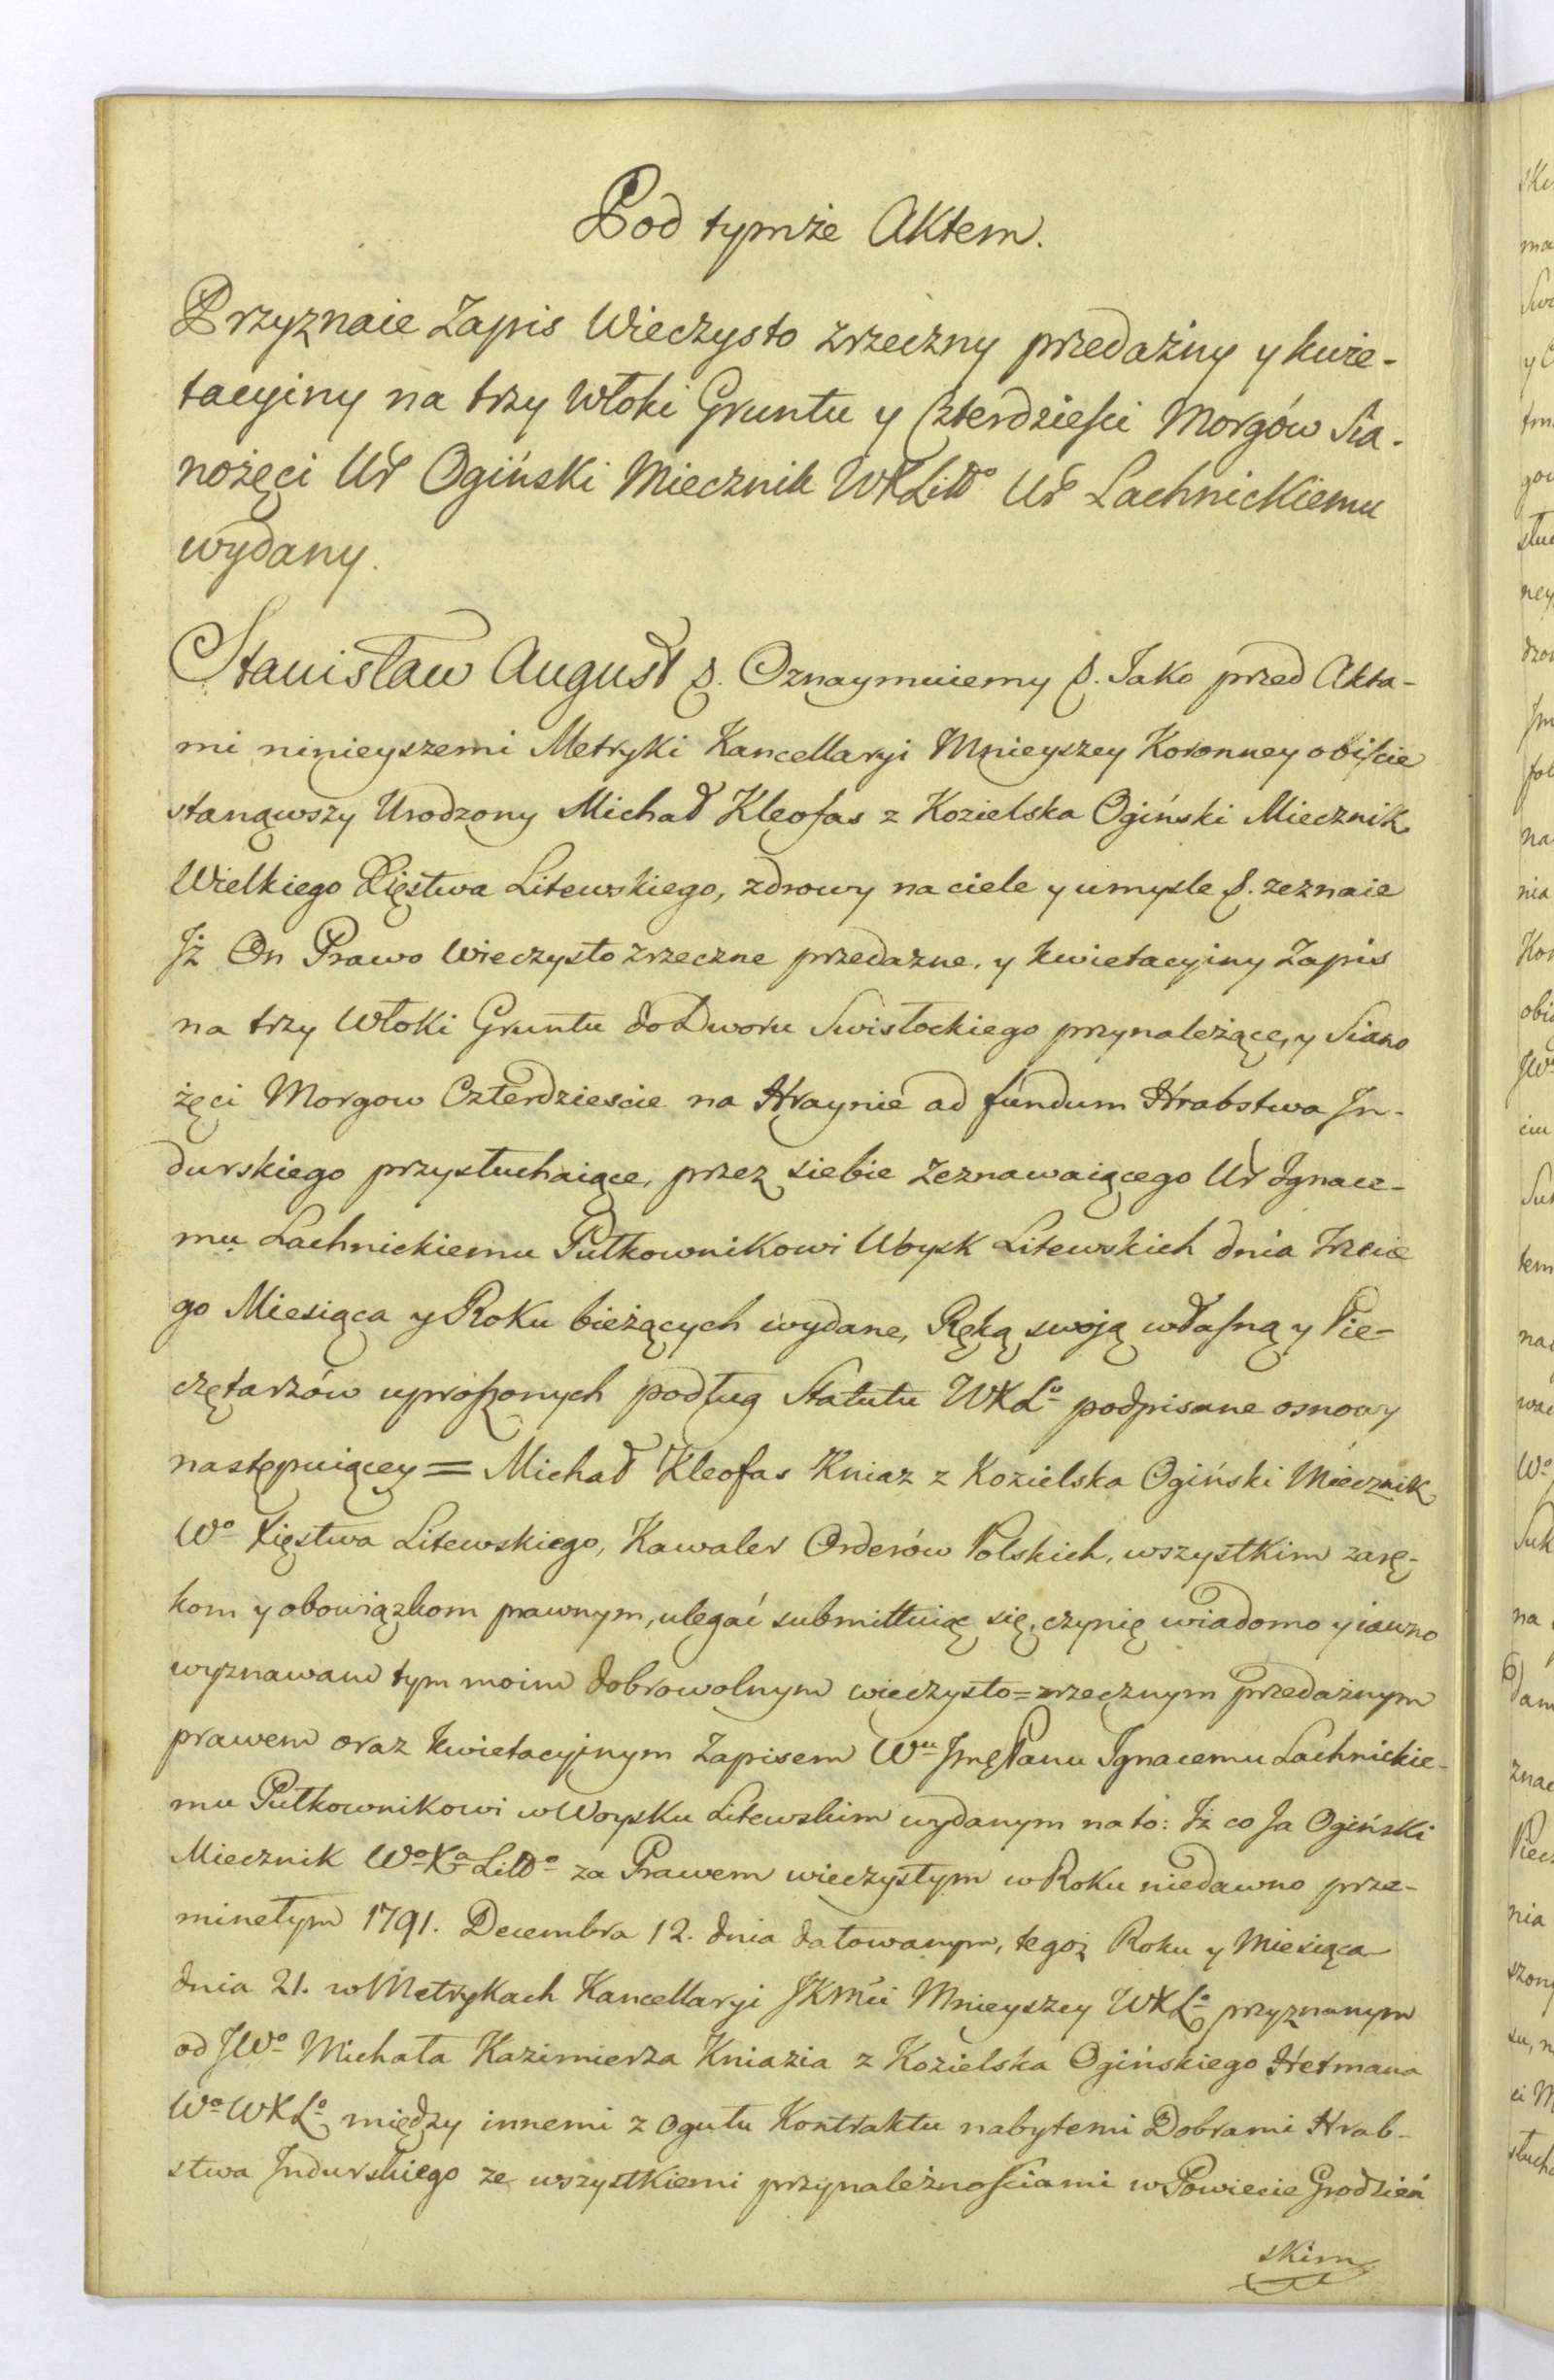 Pod tymże Aktem.
Przyznaie Zapis Wieczysto zrzeczny przedażny y kwie-
tacyiny na trzy Włoki Gruntu y Czterdzieści Morgów Sia-
nożęci Ur Ogiński Miecznik WXLitto Ur Lachnickiemu
wydany.
Stanisław August &. Oznaymuiemy &. Jako przed Akta-
mi ninieyszemi Metryki Kancellaryi Mnieyszey Koronney obiście
stanąwszy Urodzony Michał Kleofas z Kozielska Ogiński Miecznik
Wielkiego Xięstwa Litewskiego, zdrowy na ciele y umysle &. zeznaie
Jż On Prawo Wieczysto zrzeczne przedazne, y kwietacyiny Zapis
na trzy Włoki Gruntu do Dworu Swisłockiego przynależące, y Siano
żęci Morgow Czterdziescie na Hraynie ad fundum Hrabstwa In-
durskiego przysłuchaiące, przez siebie Zeznawaiącego Ur Ignace-
mu Lachnickiemu Pułkownikowi Woysk Litewskich dnia trzecie
go Miesiąca y Roku bieżących wydane, Ręką swoją własną y Pie-
czętarzów uproszonych podług Statutu WXLo podpisane osnowy
następuiącey = Michał Kleofas Kniaz z Kozielska Ogiński Miecznik
Wo Xięstwa Litewskiego, Kawaler Orderów Polskich, wszystkim zarę-
kom y obowiązkom prawnym, ulegać submittuię się, czynię wiadomo y iawno
wyznawam tym moim dobrowolnym wieczysto = zrzecznym przedażnym
prawem oraz kwietacyjnym Zapisem Wu Jmę Panu Ignacemu Lachnickie-
mu Pułkownikowi w Woysku Litewskim wydanym na to: Iż co Ja Ogiński
Miecznik Wo Xa Litto za Prawem wieczystym w Roku niedawno prze-
minełym 1791. Decembra 12. dnia datowanym, tegoż Roku y Miesiąca
dnia 21. w Metrykach Kancellaryi JKMci Mnieyszey WXLo przyznanym
od JWo Michała Kazimierza Kniazia z Kozielska Ogińskiego Hetmana
Wo WXLo między innemi z ogułu Kontraktu nabytemi Dobrami Hrab-
stwa Indurskiego ze wszystkiemi przynależnościami w Powiecie Grodzień
skim